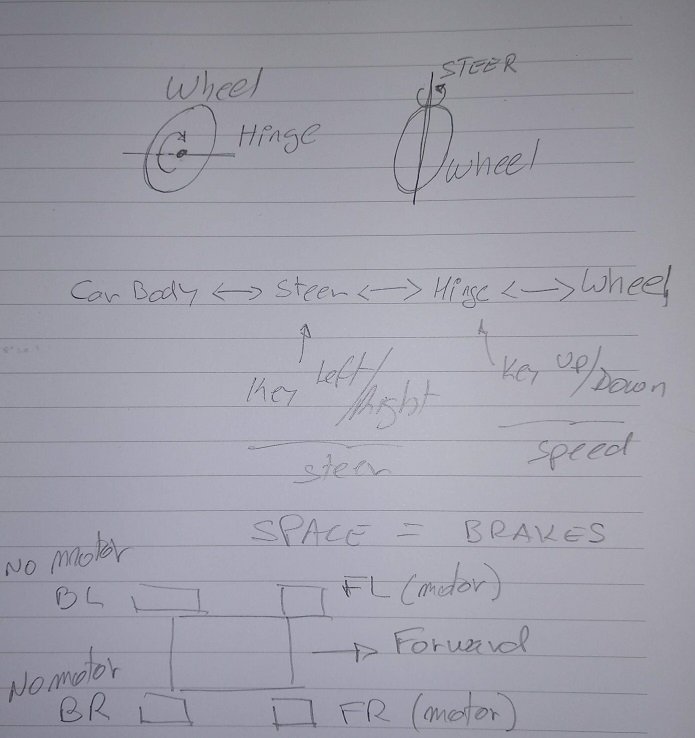 STEER
Wheel
Hinge
Wheel
Car Body <-> Steer <-> Hinge <-> Wheel
Key Left/Right
Key Up/Down
steer
speed
SPACE = BRAKES
No motor
BL
FL (motor)
Forward
No motor
BR
FR (motor)